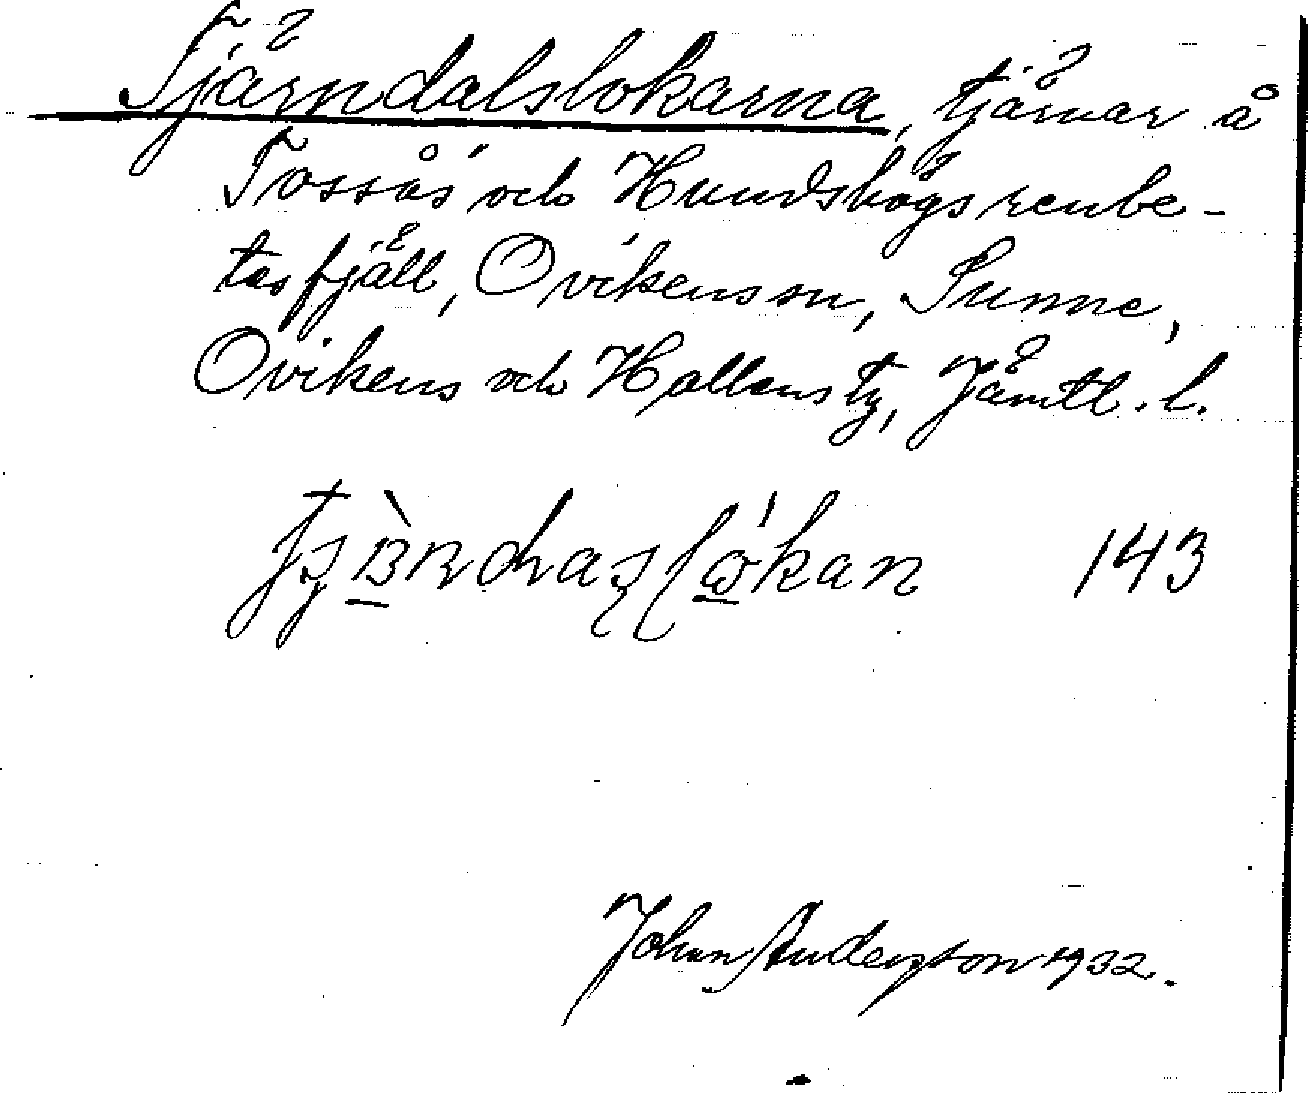 Tjärndalslokarna, tjärnar å
Tossås och Hundshögs renbe-
tesfjäll, Ovikens sn, Sunne,
Ovikens och Hallens tg, Jämtl. l.
143
Johan Anderzson 1932.